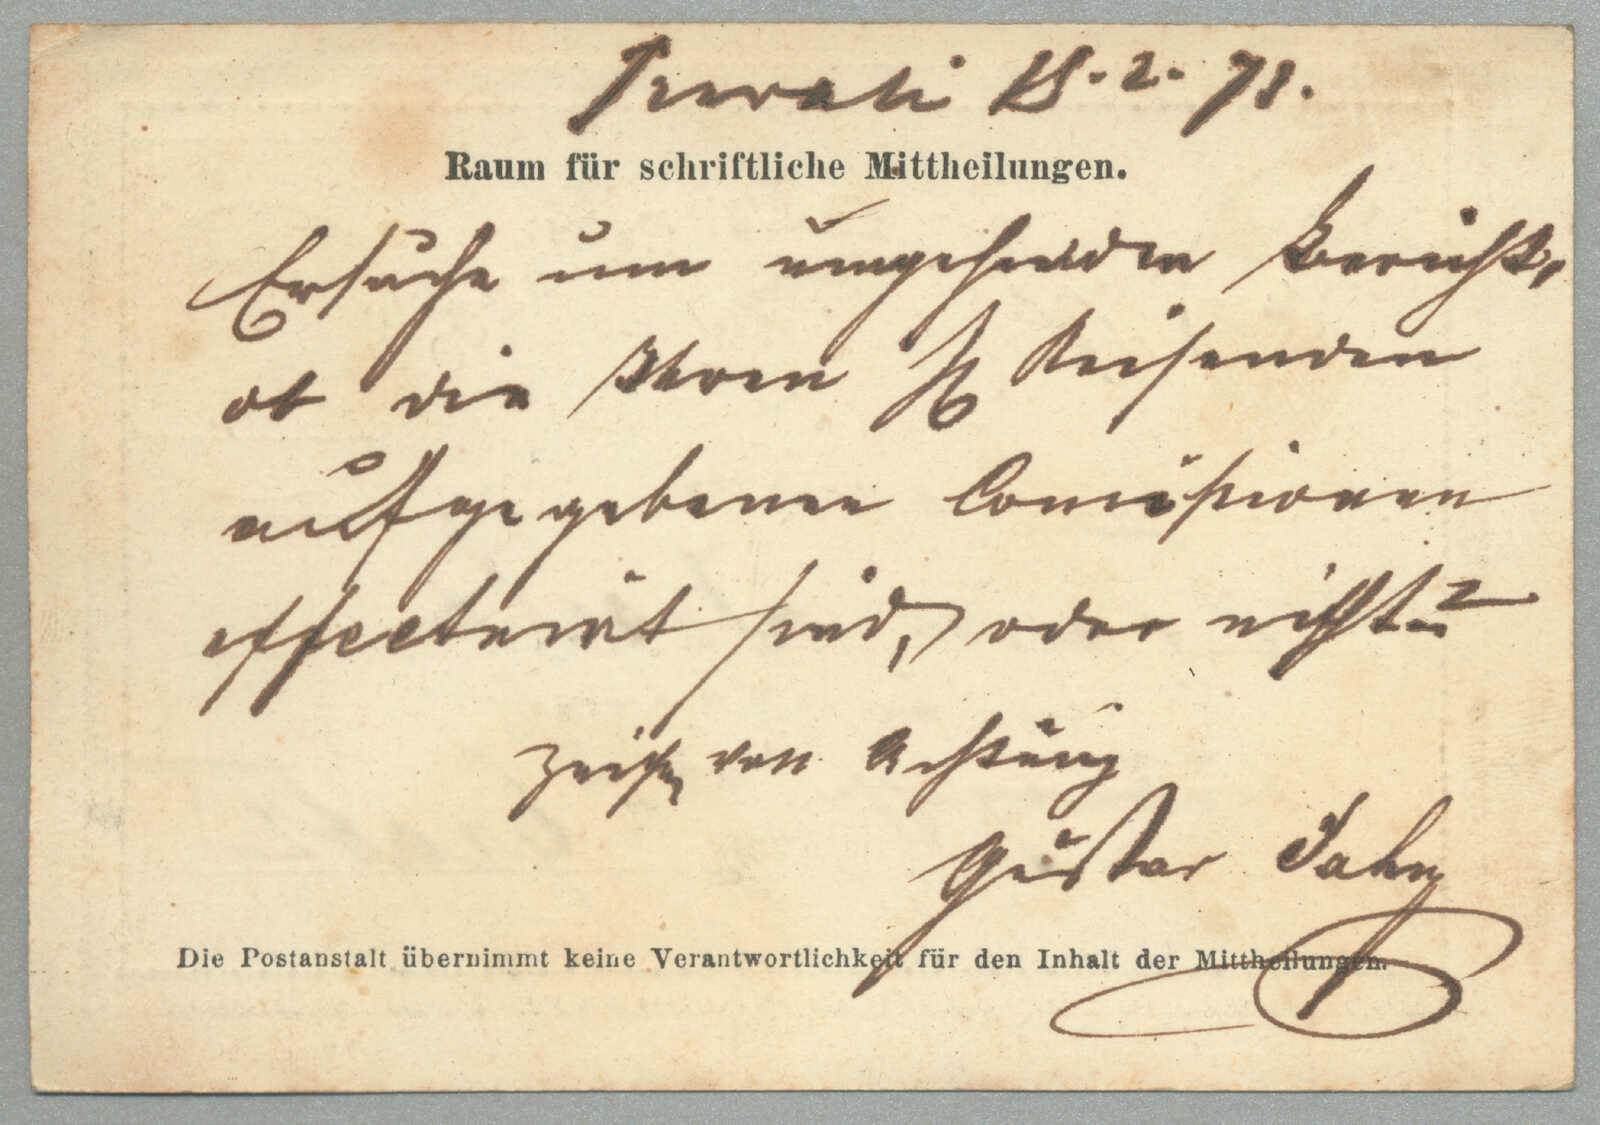 15.2.73.
Raum für schriftliche Mittheilungen.
Ersuche um umgehenden Bericht,
ob die Ihren H Reisenden
aufgegebenen Comissionen
effectuirt sind, oder nicht?
Zeichn von Achtung
Gustav Jahn
Die Postanstalt übernimmt keine Verantwortlichkeit für den Inhalt der Mittheilungen.